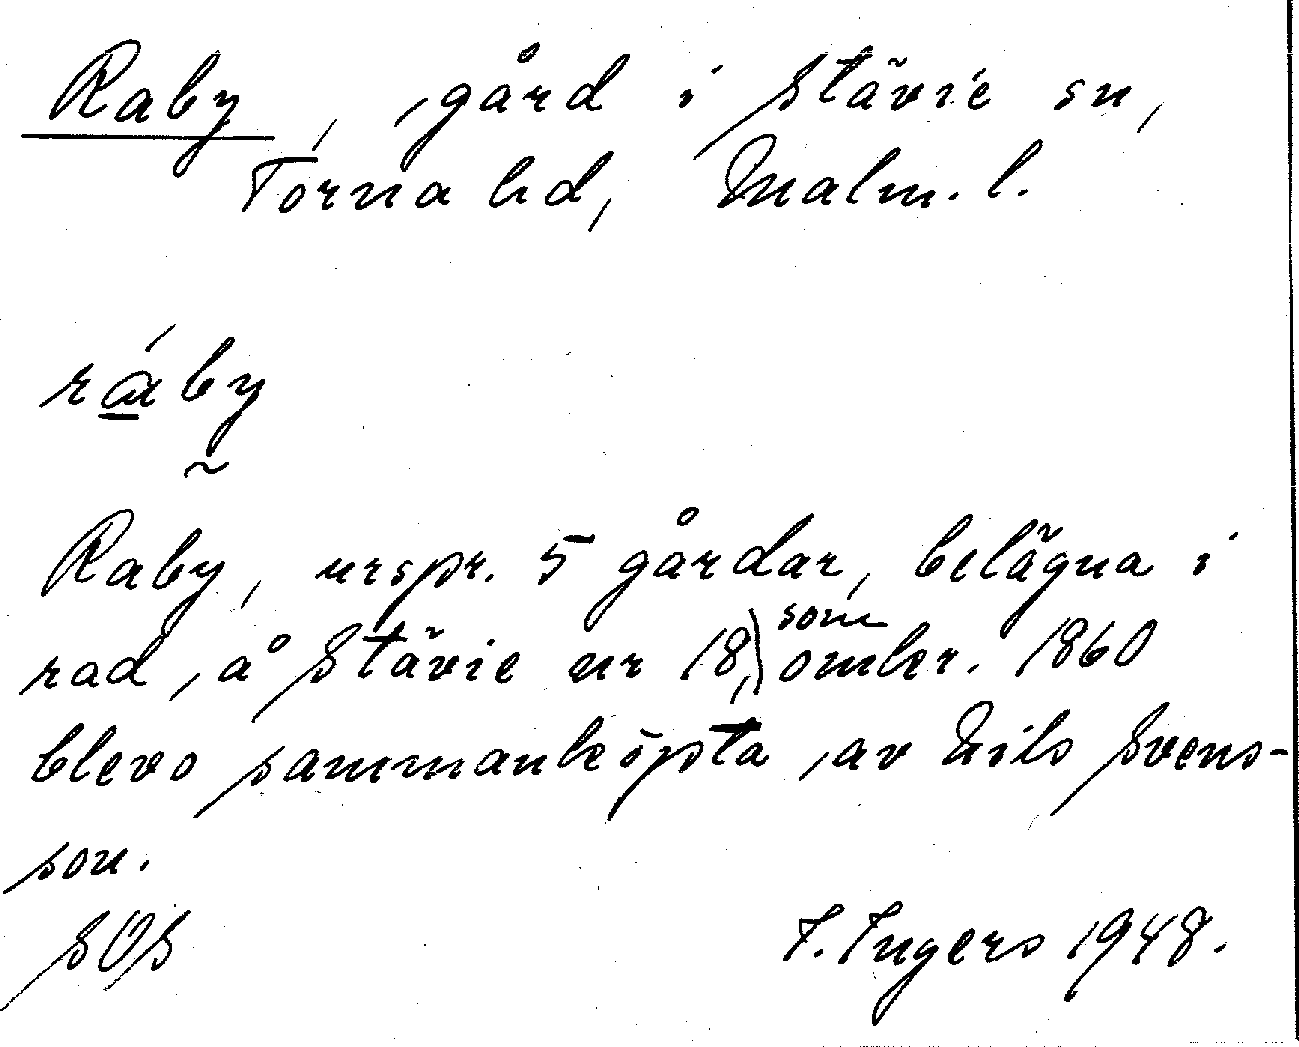 Raby, gård i Stävie sn,
Torna hd, Malm. l.
råby
Raby, urspr. 5 gårdar, belägna i
rad, å Stävie nr 18, som omkr. 1860
blevo sammanköpta av Nils Svens-
son.
SOS I. Ingers 1948.